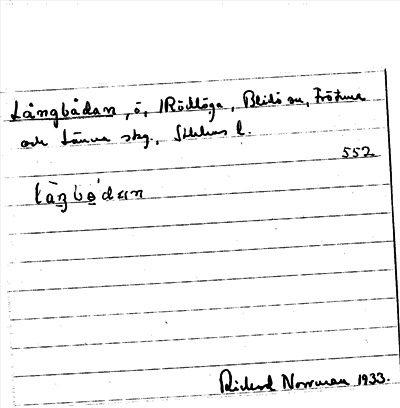 Långbådan, ö, Rödlöga, Blidö sn, Frötuna
och Länna skg., Sthlms l.
552
låŋbådan
Rickard Norrman 1933.